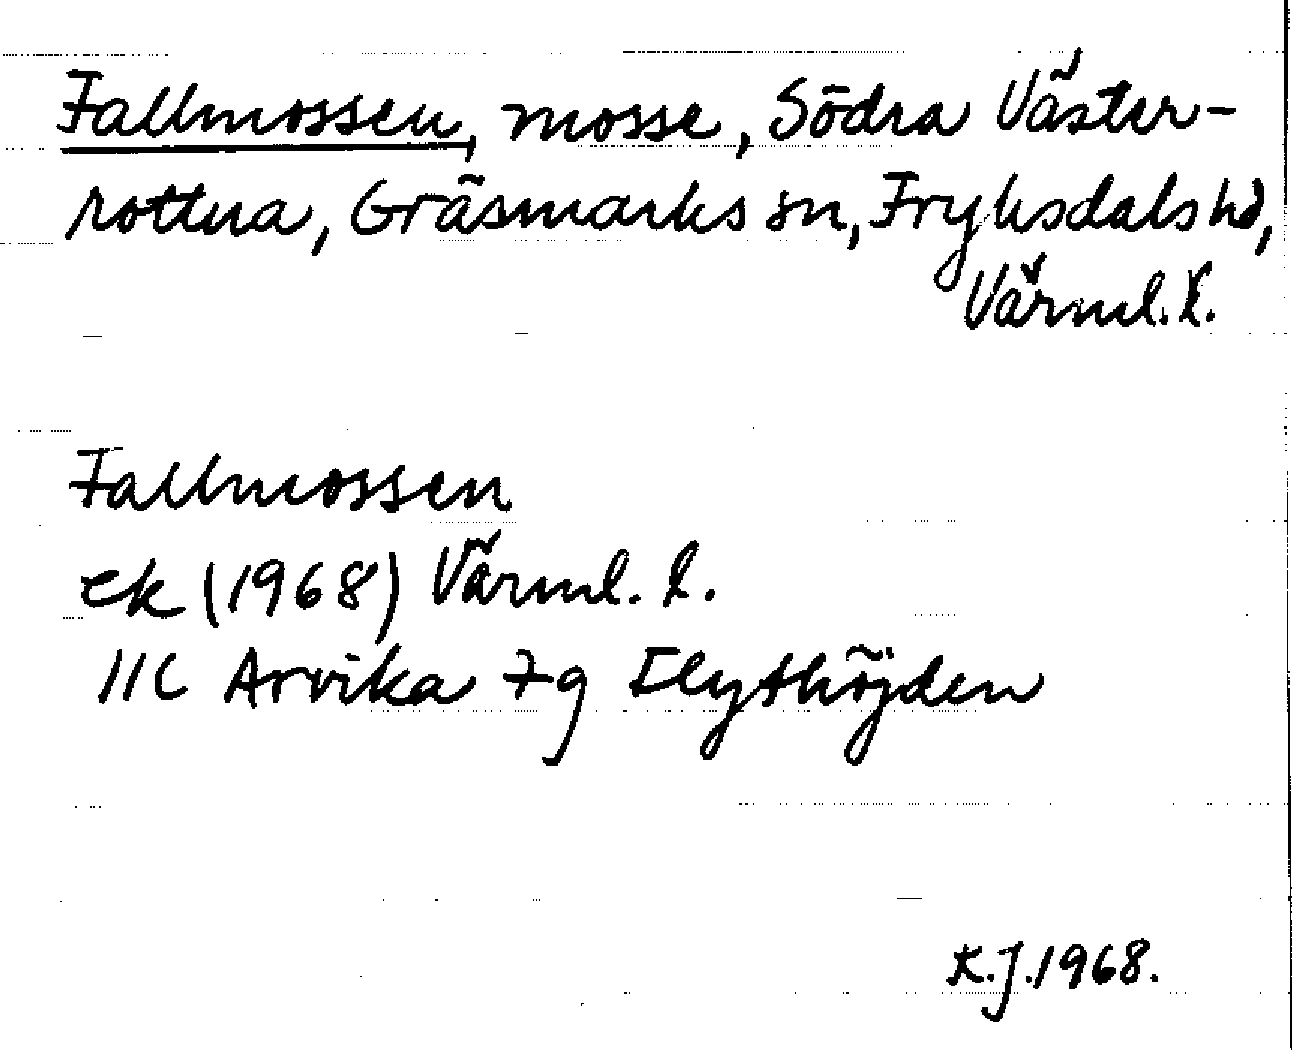 Fallmossen, mosse, Södra Väster-
rottna, Gräsmarks sn, Fryksdals hd,
Värml. l.
Fallmossen
ek (1968) Värml. l.
11C Arvika 7g Flythöjden
K.J. 1968.